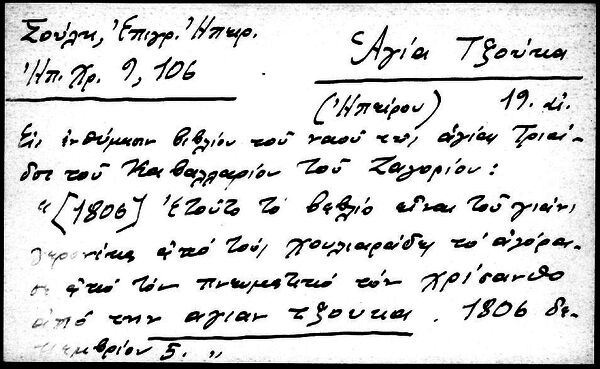 Σούλη, Ἐπιγρ. Ἠπειρ.
Ἠπ. Χρ. 9, 106
Ἁγία Τζούκα
(Ἠπείρου) 19. αἰ.
Εἰς ἐνθύμησιν βιβλίου τοῦ ναοῦ τῆς ἁγίας Τριά-
δος τοῦ Καβαλλαρίου τοῦ Ζαγορίου:
"[1806] Ἐτοῦτο τὸ βιβλίο εἶναι τοῦ γιάνι
γερονίκα ἀπὸ τοὺς χουλιαράδες τὸ ἀγόρα-
σε ἀπὸ τὸν πνευματικὸ τὸν χρίσανθο
ἀπὸ την αγιαν τζουκα. 1806 δε-
κεμβρίου 5."